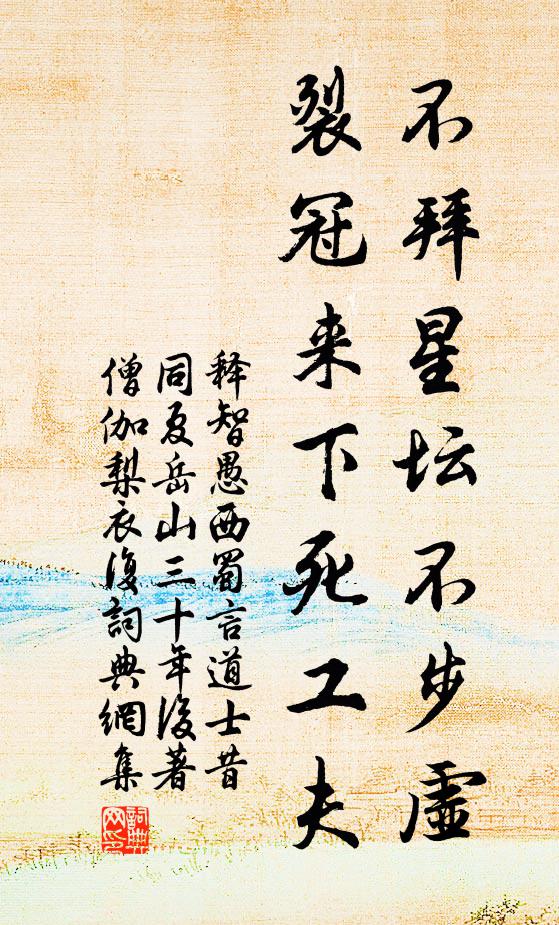 不拜星坛不步虚
裂冠来下死工夫
释智愚西蜀言道士昔
同夏岳山三十年後著
僧伽梨衣復詞典網集
詞典
网印